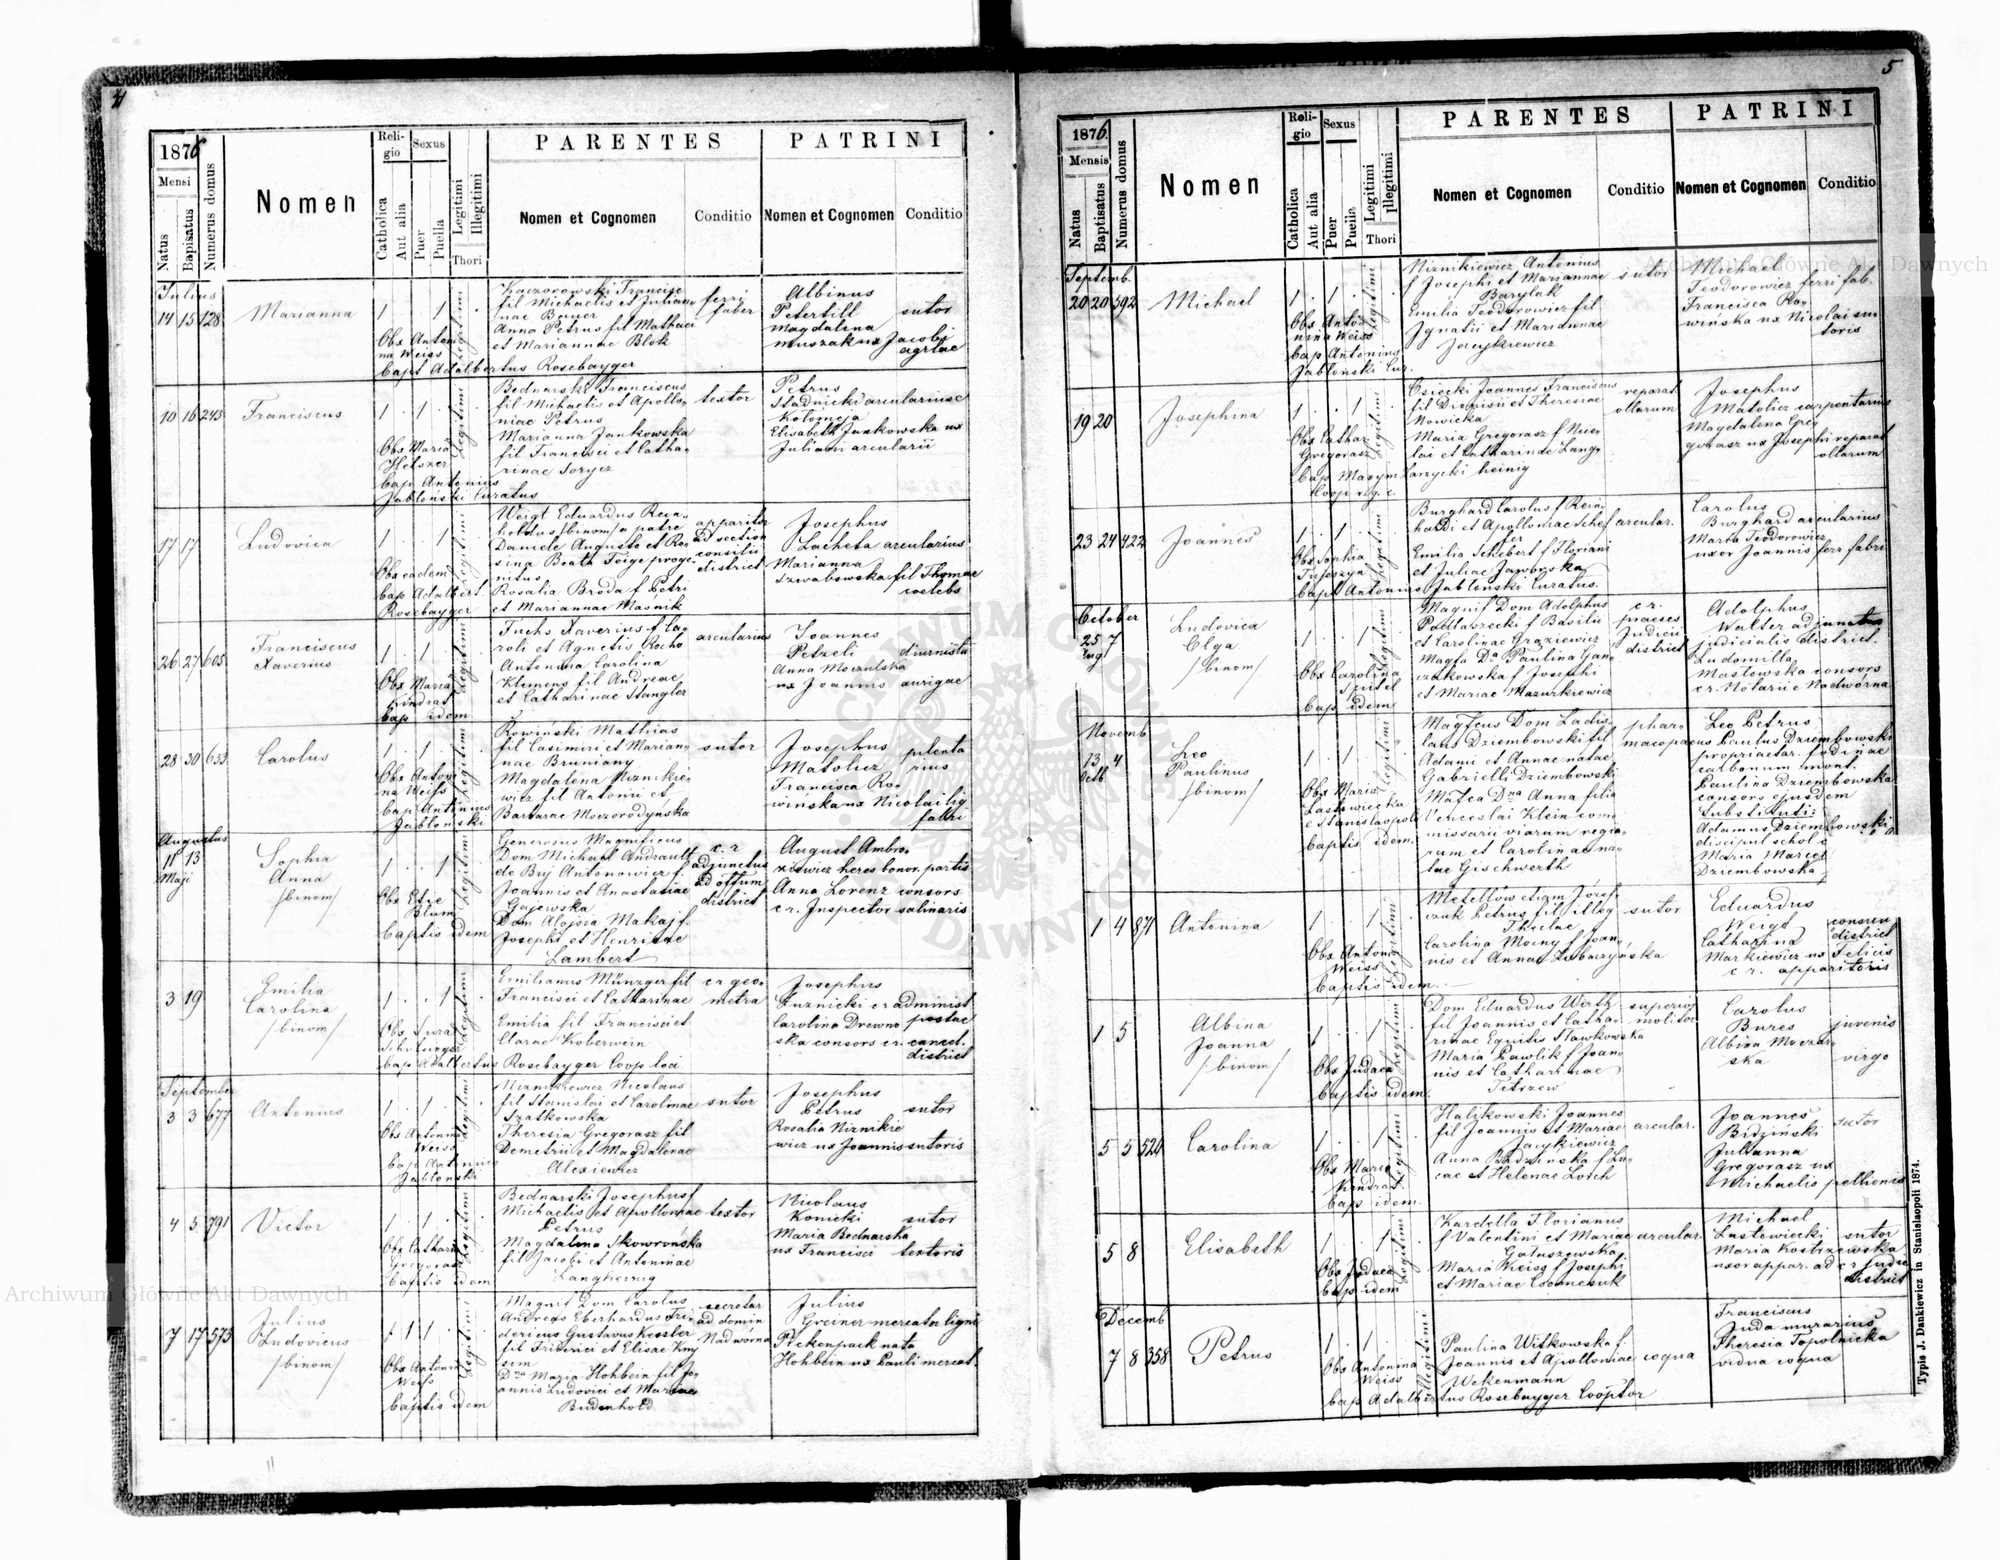 4
1876
Mensi
Natus
Bapisatus
Numerus domus
Nomen
Religio
Catholica
Aut alia
Sexus
Puer
Puella
Legitimi
Illegitimi
Thori
PARENTES
Nomen et Cognomen
Conditio
PATRINI
Nomen et Cognomen
Conditio
Julius
14 15 128
Marianna
1 1
Obs Antoni
na Weiss
bapt Adalbertus Rosebayger
Legitimi
Kaczorowski Francisc
fil Michaelis et Julian
nae Bauer
Anna Petrus fil Mathaei
et Mariannae Blok
ferri
faber
Albinus
Petertill
Magdalena
Muszak ux Jacobi
agrlae
sutor
10 16 243
Franciscus
1 1
Obs Maria
Helszer
bap Antonius
Jabłoński Curatus
Legitimi
Bednarski Franciscus
fil Michaelis et Apollo
niae Petrus
Marianna Jankowska
fil Francisci et Catha
rinae Torycz
textor
Petrus
Stadnicki arcularius e
Kolomeja
Elisabeth Jankowska ux
Juliani arcularii
17 17
Ludovica
1 1
Obs eadem
bap Adalbert.
Rosebayger
Legitimi
Weigt Eduardus Rein
holdus /binom/ a patre
Daniele Augusto et Ro
sina Beata Feige proge
nitus
Rosalia Broda f Petri
et Mariannae Masnik
apparitor
ad section
consilii
district
Josephus
Lacheta arcularius
Marianna
Szwabowska fil Thomae
coelebs
26 27 605
Franciscus
Xaverius
1 1
Obs Maria
Kindrat
bap idem
Legitimi
Fuchs Xaverius f Ca
roli et Agnetis Rocho
Antonina Carolina
Klemens fil Andreae
et Catharinae Stangler
arcularius
Joannes
Petzeli
Anna Moczulska
ux Joannis aurigae
diurnista
28 30 653
Carolus
1 1
Obs Antoni
na Weiss
bap Antonius
Jabłoński
Legitimi
Rowiński Mathias
fil Casimiri et Marian
nae Bruniany
Magdalena Niznikie
wicz fil Antonii et
Barbarae Moczorodyńska
sutor
Josephus
Matolicz
Francisca Ro
wińska ux Nicolai lig
fabri
Augustus
11 13
Maji
Sophia
Anna
/binom/
1 1
Obs Etie
Blum
baptis idem
Legitimi
Generosus Magnificus
Dom Michael Andrault
de Buj Antonowicz f
Joannis et Anastasiae
Gajewska
Dom Alojsia Makaj f.
Josephi et Henricae
Lambert
c. r
adjunctus
ad offum
district
August Ambro
ziewicz heres bonor. partis
Anna Lorenz consors
c r. Inspector salinaris
3 19
Emilia
Carolina
/binom/
1 1
bap Adalbertus Rosebayger Coop loci
Legitimi
Emilianus Münzger fil
Francisci et Catharinae
Emilia fil Francisci et
Clarae Koberwein
c r geo
metra
Josephus
Luznicki c r administ
postae
Carolina Drewno
ska consors c r. cancel.
district
September
3 3 677
Antonius
1 1
Obs Antonina
Weiss
bap Antonius
Jabłoński
Legitimi
Niznikiewicz Nicolaus
fil Stanislai et Carolinae
Szatkowska
Theresia Gregorasz fil
Demetrii et Magdalenae
Alexiewicz
sutor
Josephus
Petrus
Rosalia Niznikie
wicz ux Joannis sutoris
sutor
4 5 791
Victor
1 1
Obs Cathari
Gregorasz
baptis idem
Legitimi
Bednarski Josephus f
Michaelis et Apolloniae
Petrus
Magdalena Skowrońska
fil Jacobi et Antoninae
Langheinig
textor
Nicolaus
Konicki
Maria Bednarska
ux Francisci textoris
sutor
7 17 573
Julius
Ludovicus
/binom/
1 1
Obs Antonin
Weiss
baptis idem
Legitimi
Magnif Dom Carolus
Andreas Eberhardus Fri
dericus Gustavus Kessler
fil Friderici et Elisae Kny
sim
Dna Maria Hohbein fil Jo
annis Ludovici et Mariae
Budenhold
secretar
ad domin
Nadwórna
Julius
Greiner mercator ligni
Pickenpack nata
Hohbein ux Pauli mercat.
5
1876
Mensis
Natus
Baptisatus
Numerus domus
Nomen
Religio
Catholica
Aut alia
Sexus
Puer
Puella
Legitimi
Illegitimi
Thori
PARENTES
Nomen et Cognomen
Conditio
PATRINI
Nomen et Cognomen
Conditio
Septemb.
20 20 592
Michael
1 1
Obs Anto
nina Weiss
bap Antonius
Jabłoński Cur.
Legitimi
Niznikiewicz Antonius
f Josephi et Mariannae
Barylak
Emilia Teodorowicz fil
Ignatii et Mariannae
Jacykiewicz
sutor
Michael
Teodorowicz ferri fab.
Francisca Ro
wińska ux Nicolai su
toris
19 20
Josephina
1 1
Obs Cathar
Gregorasz
Legitimi
Osiecki Joannes Franciscus
fil Dionisii et Theresiae
Nowicka
Maria Gregorasz f Nico
lai et Catharinae Lang
heinig
reparat
ollarum
Josephus
Matolicz carpentarius
Magdalena Greg
gorasz ux Josephi reparat
ollarum
23 24 422
Joannes
1 1
Obs Sophia
bapt Antonius Jabłoński Curatus.
Legitimi
Burghard Carolus f Rein
hardi et Apolloniae Schef
fer
Emilia Schebert f Floriani
et Juliae Jaworska
arcular.
Carolus
Burghard arcularius
Maria Teodorowicz
uxor Joannis ferr fabri
October
25 7
Aug
Ludovica
Olga
/binom/
1 1
Obs Carolina
Spitel
bap idem
Legitimi
Magnif Dom Adolphus
Podlaszecki f Basilii
et Carolinae Graziewicz
Magfa Da Paulina Gan
czakowska f Josephi
et Mariae Mazurkiewicz
c r.
praeses
Judicii
district
Adolphus
Walter adjunctus
judicialis district.
Ludomilla
Masłowska consors
c r. Notarii e Nadwórna
Novemb
13 4
Octb
Leo
Paulinus
/binom/
1 1
Obs Maria
Lastowiecka
e Stanislaopoli
baptis idem.
Legitimi
Magfcus Dom Ladis
laus Dziembowski fil
Adami et Annae natae
Gabrielli Dziembowski
Mafca Dna Anna filia
Venceslai Klein com
missarii viarum regia
rum et Carolinae na
tae Gischwerth
phar
macopaeus
Leo Petrus
Paulus Dziembowski
propriaetar. fodinae
carbonum mont.
Paulina Dziembowska
consors ejusdem
Substituti:
Adamus Dziembowski
discipul schol
Maria Marcel
Dziembowska
1 4 871
Antonina
1 1
Obs Antoni
Weiss
baptis idem.
Legitimi
Metellów etiam Józef
czuk Petrus fil illeg
Theclae
Carolina Moiny f Joan
nis et Annae Lubaczyńska
sutor
Eduardus
Weigt
Catharina
Markiewicz ux Felicis
c r. apparitoris
district
1 5
Albina
Joanna
/binom/
1 1
Obs Judaea
baptis idem.
Legitimi
Dom Eduardus Wirth
fil Joannis et Catha
rinae Equitis Sławkowska
Maria Pawlik f Joan
nis et Catharinae
Tetrzew
superior
molitor
Carolus
Bures
Albina Moczar
ska
juvenis
virgo
5 5 520
Carolina
1 1
Obs Maria
Kindrat
bap idem.
Legitimi
Halikowski Joannes
fil Joannis et Mariae
Jacykiewicz
Anna Bidzińska f Lu
cae et Helenae Lorch
arcular.
Joannes
Bidziński
Julianna
Gregorasz ux
Michaelis pellionis
sutor
5 8
Elisabeth
1 1
Obs Judaea
bap idem
Legitimi
Kardella Florianus
f Valentini et Mariae
Gałuszewska
Maria Weiss f Josephi
et Mariae
arcular.
Michael
Lastowiecki
Maria Kostrzewska
uxor appar. ad c r Judic
district
sutor
Decemb
7 8 358
Petrus
1 1
Obs Antonina
Weiss
bap Adalbertus Rosebayger Cooptor
Illegitimi
Paulina Witkowska f.
Joannis et Apolloniae
Wekenmann
coqua
Franciscus
Juda murarius
Theresia Topolnicka
vidua coqua
Typis J. Dankiewicz in Stanislaopoli 1874.
Archiwum Główne Akt Dawnych
Archiwum Główne Akt Dawnych
ARCHIWUM GŁÓWNE AKT DAWNYCH